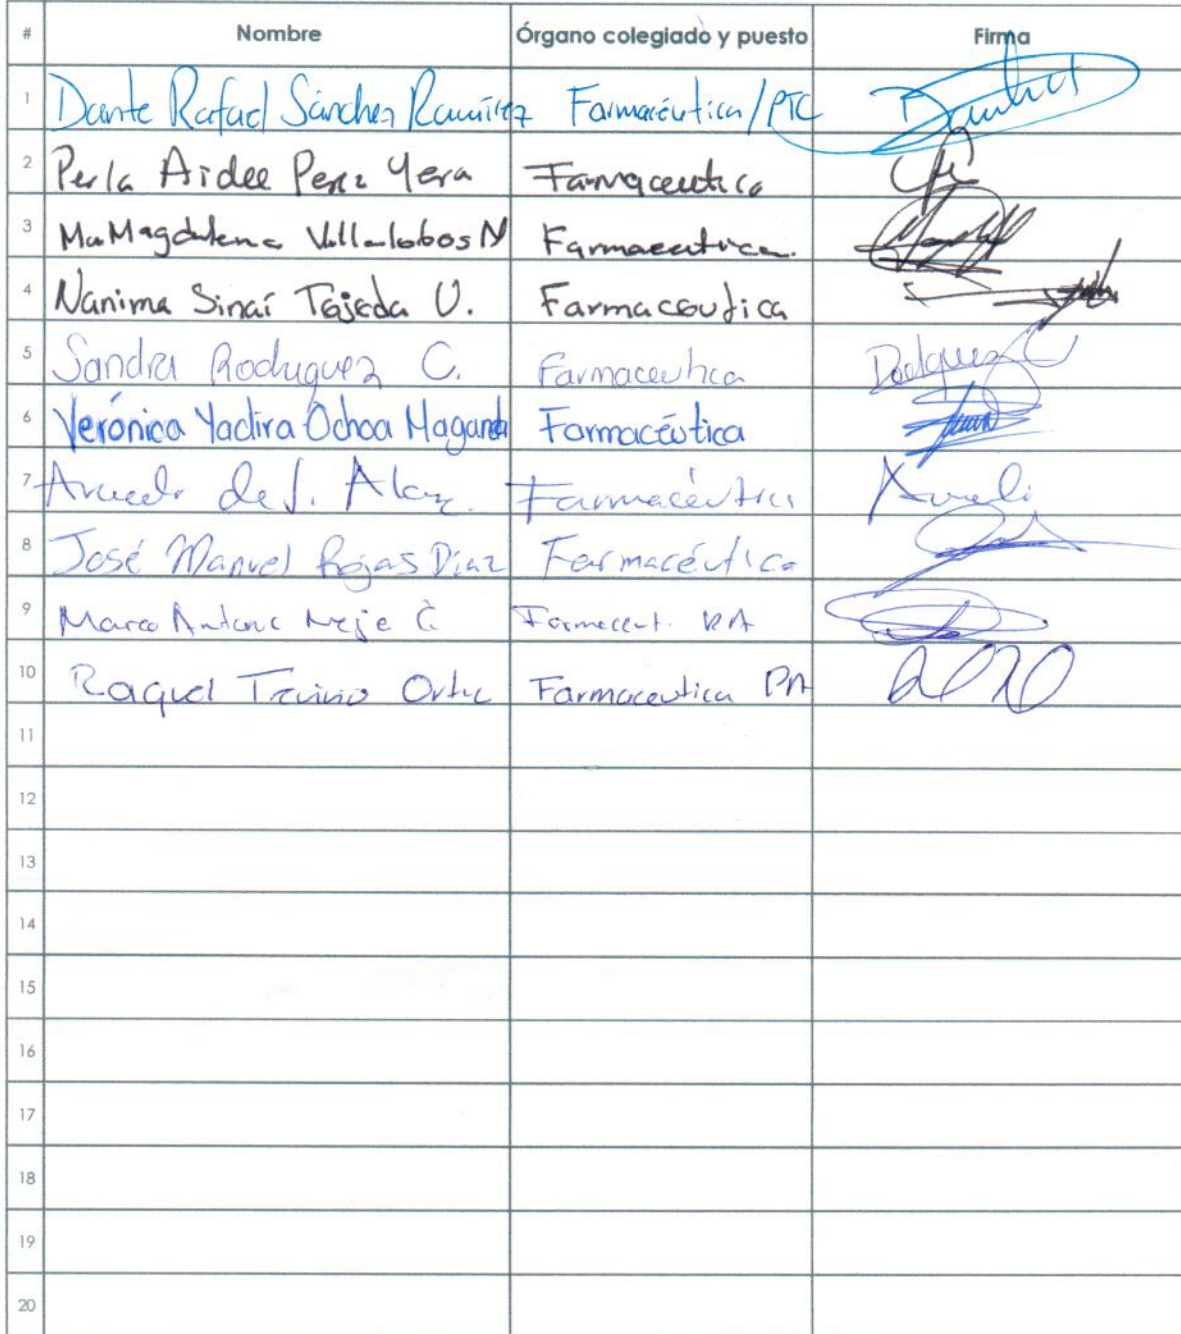 # Nombre Órgano colegiado y puesto Firma
1 Dante Rafael Sánchez Ramírez Farmacéutica/PTC
2 Perla Aidee Perez Yera Farmaceutica
3 Ma Magdalena Villalobos N Farmaceutica.
4 Nanima Sinaí Tejeda U. Farmaceutica
5 Sandra Rodriguez C. Farmaceutica
6 Verónica Yadira Ochoa Maganda Farmacéutica
7 de J. Farmacéutica
8 José Manuel Rojas Díaz Farmacéutica
9 Marco C. Farmaceut. PA
10 Raquel Ortiz Farmaceutica PA
11
12
13
14
15
16
17
18
19
20